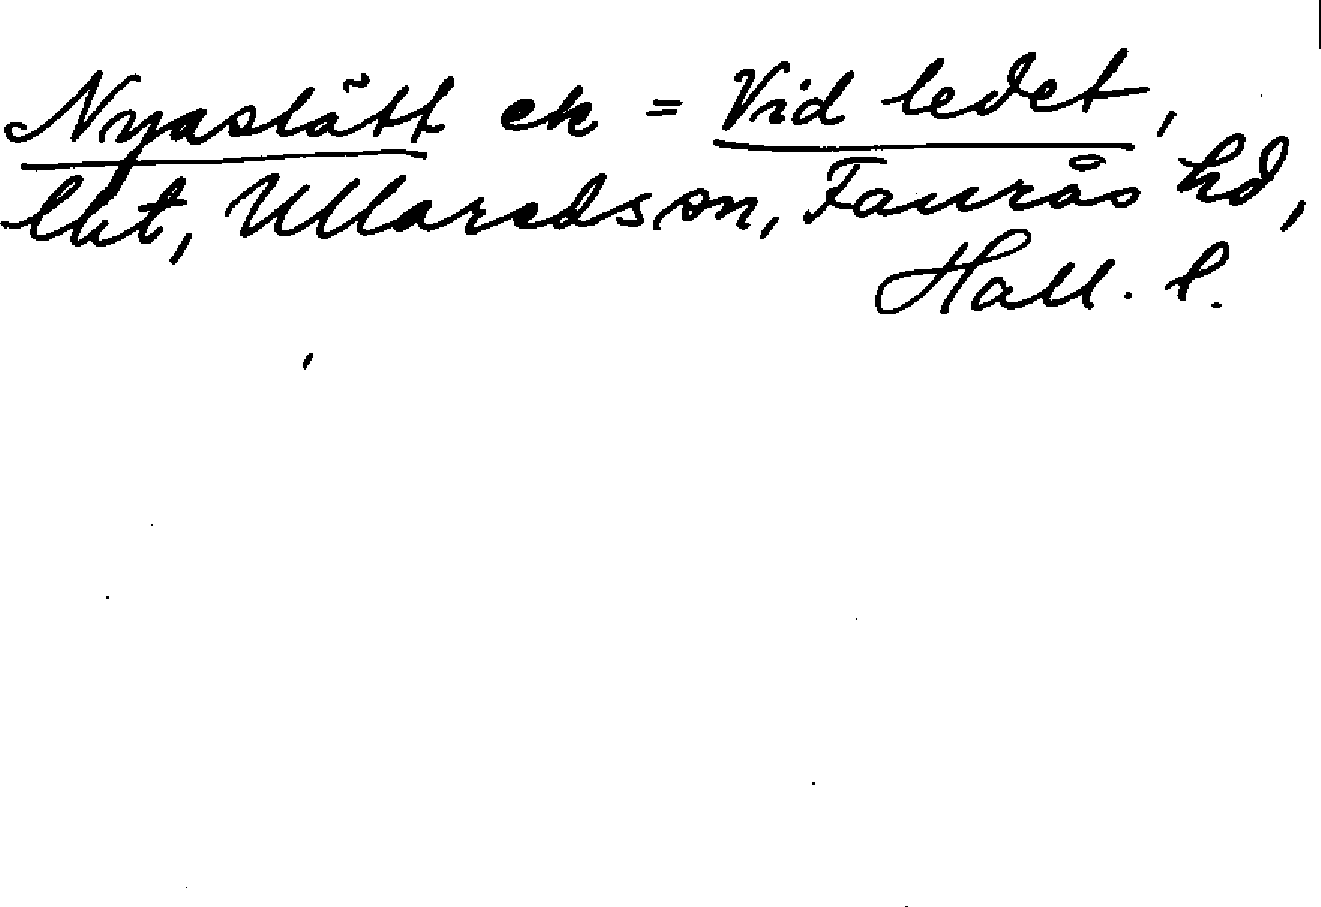 Nyaslätt ek = Vid ledet,
lht, Ullareds sn, Faurås hd,
Hall. l.